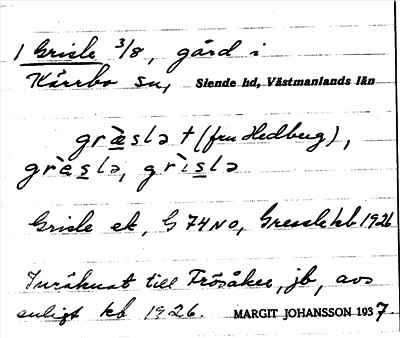 1 Grisle 3/8, gård i
Kärrbo sn, Siende hd, Västmanlands län
gr`æslə † (fru Hedberg),
gr`eslə, gr`ıslə
Grisle ek, G 74 NO, Gressle kb 1926
Inräknat till Frösåker, jb, avs
enligt kb 1926. MARGIT JOHANSSON 1937.